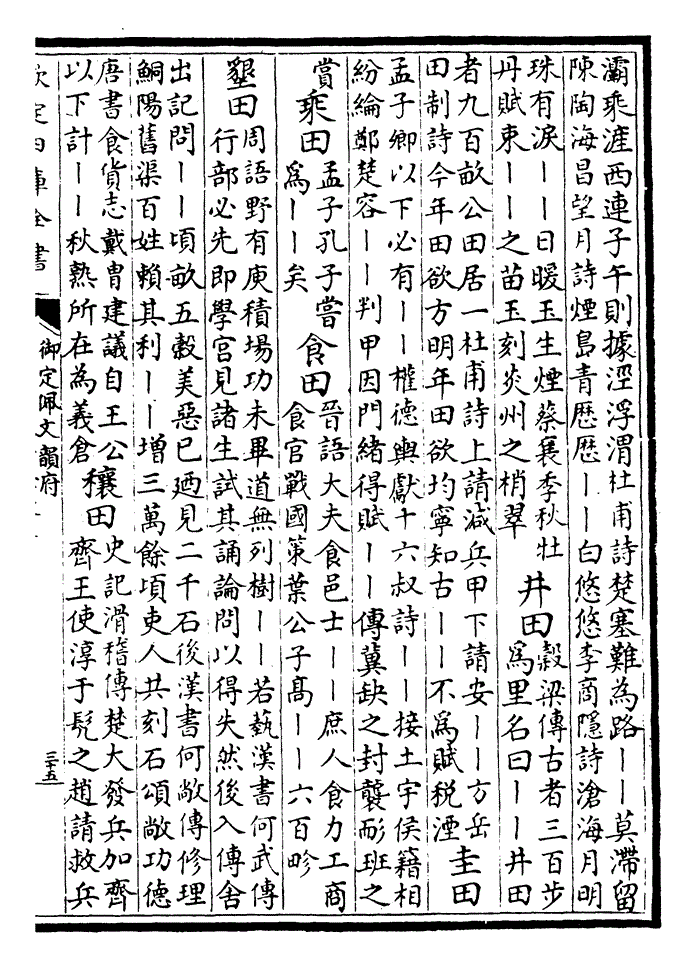 灞乘滻西連子午則據涇浮渭杜甫詩楚塞難為路丨丨莫滯留
陳陶海昌望月詩煙島青歷歷丨丨白悠悠李商隱詩滄海月明
珠有淚丨丨日暖玉生煙蔡襄季秋牡
丹賦束丨丨之苗玉刻炎州之梢翠
井田
穀梁傳古者三百步
為里名曰丨丨井田
者九百畝公田居一杜甫詩上請減兵甲下請安丨丨方岳
田制詩今年田欲方明年田欲均寧知古丨丨不為賦稅湮
圭田
孟子卿以下必有丨丨權德輿獻十六叔詩丨丨接土宇侯籍相
紛綸鄭楚容丨丨判甲因門緒得賦丨丨傳冀缺之封襲形班之
賞
乘田
孟子孔子嘗
為丨丨矣
食田
晉語大夫食邑士丨丨庶人食力工商
食官戰國策葉公子髙丨丨六百畛
墾田
周語野有庾積場功未畢道無列樹丨丨若蓺漢書何武傳
行部必先即學宫見諸生試其誦論問以得失然後入傳舍
出記問丨丨頃畝五穀美惡已廼見二千石後漢書何敞傳修理
鮦陽舊渠百姓賴其利丨丨增三萬餘頃吏人共刻石頌敞功德
唐書食貨志戴胄建議自王公
以下計丨丨秋熟所在為義倉
穰田
史記滑稽傳楚大發兵加齊
齊王使淳于髡之趙請救兵
欽定四庫全書
御定佩文韻府
三十五